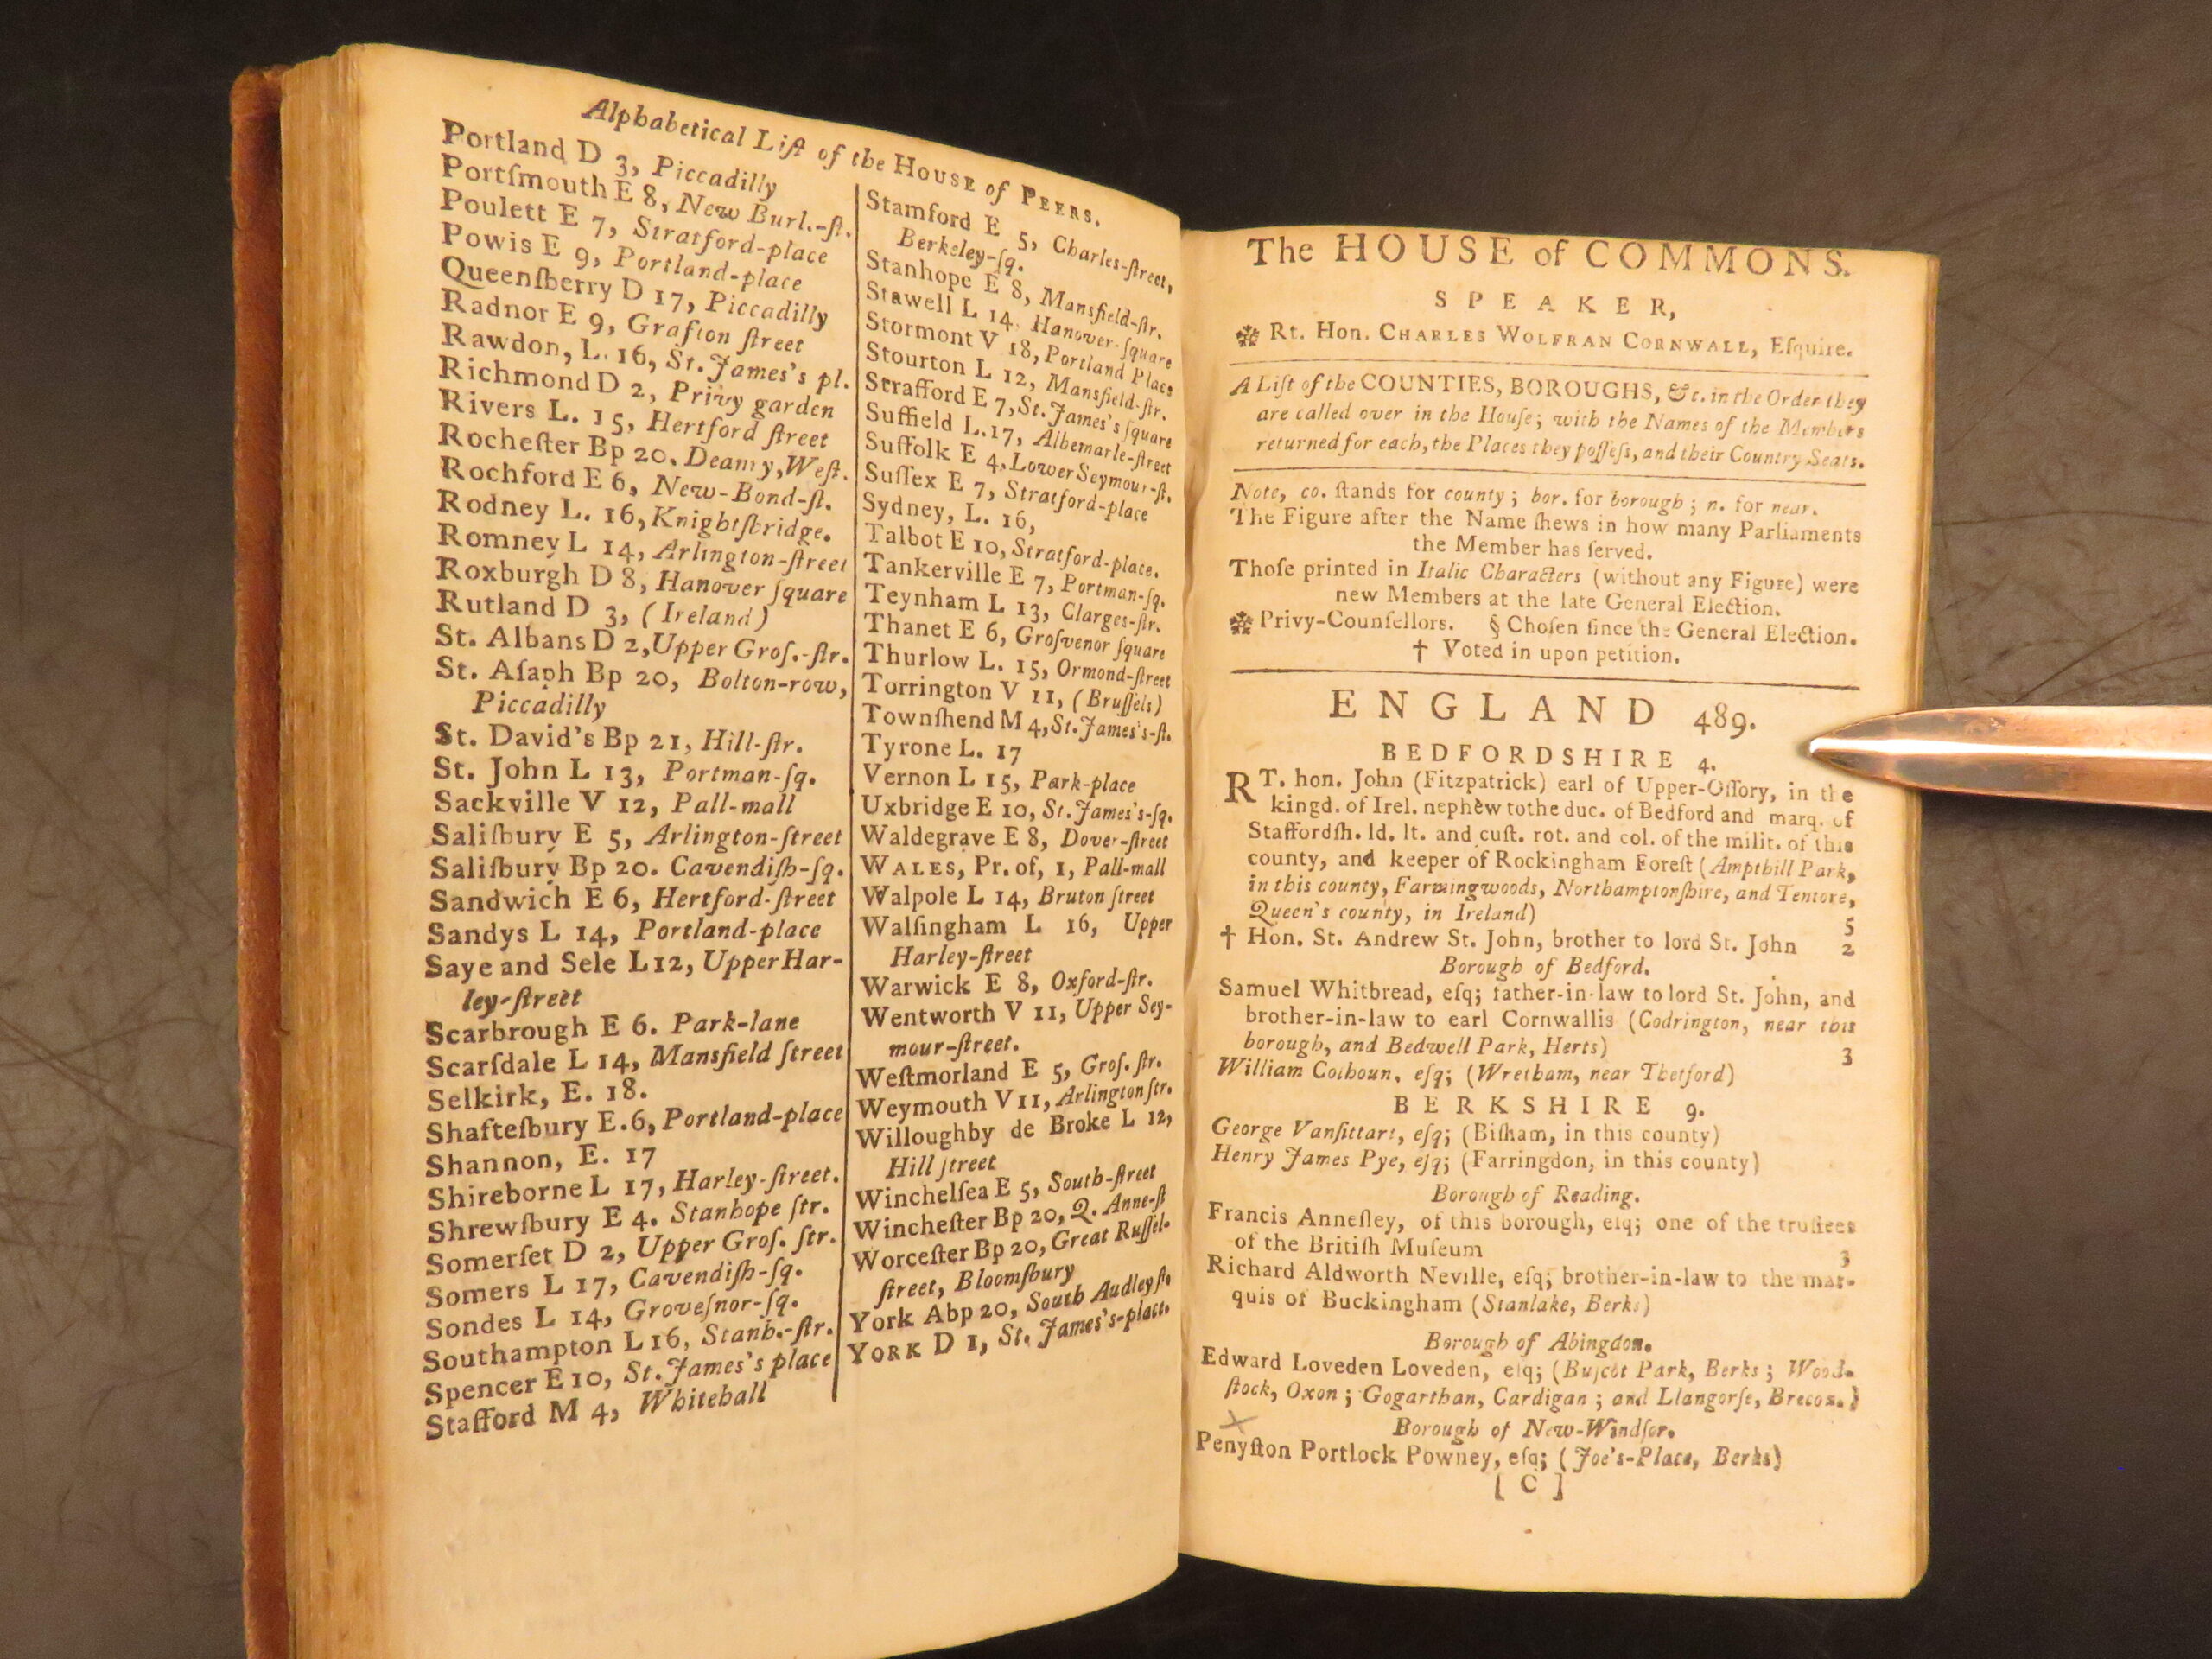 Alphabetical Liſt of the HOUSE of PEERS.
Portland D 3, Piccadilly
Portſmouth E 8, New Burl.-ſt.
Poulett E 7, Stratford-place
Powis E 9, Portland-place
Queenſberry D 17, Piccadilly
Radnor E 9, Grafton ſtreet
Rawdon, L. 16, St. James's pl.
Richmond D 2, Privy garden
Rivers L. 15, Hertford ſtreet
Rocheſter Bp 20. Deanry, Weſt.
Rochford E 6, New-Bond-ſt.
Rodney L. 16, Knightſbridge.
Romney L 14, Arlington-ſtreet
Roxburgh D 8, Hanover ſquare
Rutland D 3, (Ireland)
St. Albans D 2, Upper Groſ.-ſtr.
St. Aſaph Bp 20, Bolton-row,
Piccadilly
St. David's Bp 21, Hill-ſtr.
St. John L 13, Portman-ſq.
Sackville V 12, Pall-mall
Saliſbury E 5, Arlington-ſtreet
Saliſbury Bp 20. Cavendiſh-ſq.
Sandwich E 6, Hertford-ſtreet
Sandys L 14, Portland-place
Saye and Sele L 12, Upper Har-
ley-ſtreet
Scarbrough E 6. Park-lane
Scarſdale L 14, Mansfield ſtreet
Selkirk, E. 18.
Shafteſbury E. 6, Portland-place
Shannon, E. 17
Shireborne L 17, Harley-ſtreet.
Shrewſbury E 4. Stanhope ſtr.
Somerſet D 2, Upper Groſ. ſtr.
Somers L 17, Cavendiſh-ſq.
Sondes L 14, Groveſnor-ſq.
Southampton L 16, Stanh.-ſtr.
Spencer E 10, St. James's place
Stafford M 4, Whitehall
Stamford E 5, Charles-ſtreet,
Berkeley-ſq.
Stanhope E 8, Mansfield-ſtr.
Stawell L 14. Hanover-ſquare
Stormont V 18, Portland Place
Stourton L 12, Mansfield-ſtr.
Strafford E 7, St. James's ſquare
Suffield L. 17, Albemarle-ſtreet
Suffolk E 4, Lower Seymour-ſt.
Suſſex E 7, Stratford-place
Sydney, L. 16,
Talbot E 10, Stratford-place.
Tankerville E 7, Portman-ſq.
Teynham L 13, Clarges-ſtr.
Thanet E 6, Groſvenor ſquare
Thurlow L. 15, Ormond-ſtreet
Torrington V 11, (Bruſſels)
Townſhend M 4, St. James's-ſt.
Tyrone L. 17
Vernon L 15, Park-place
Uxbridge E 10, St. James's-ſq.
Waldegrave E 8, Dover-ſtreet
WALES, Pr. of, 1, Pall-mall
Walpole L 14, Bruton ſtreet
Walſingham L 16, Upper
Harley-ſtreet
Warwick E 8, Oxford-ſtr.
Wentworth V 11, Upper Sey-
mour-ſtreet.
Weſtmorland E 5, Groſ. ſtr.
Weymouth V 11, Arlington ſtr.
Willoughby de Broke L 12,
Hill ſtreet
Winchelſea E 5, South-ſtreet
Wincheſter Bp 20, Q. Anne-ſt
Worceſter Bp 20, Great Ruſſel-
ſtreet, Bloomſbury
York Abp 20, South Audley ſt.
YORK D 1, St. James's-place.
The HOUSE of COMMONS.
SPEAKER,
Rt. Hon. CHARLES WOLFRAN CORNWALL, Eſquire.
A Liſt of the COUNTIES, BOROUGHS, &c. in the Order they
are called over in the Houſe; with the Names of the Members
returned for each, the Places they poſſeſs, and their Country Seats.
Note, co. ſtands for county; bor. for borough; n. for near.
The Figure after the Name ſhews in how many Parliaments
the Member has ſerved.
Thoſe printed in Italic Characters (without any Figure) were
new Members at the late General Election.
Privy-Counſellors. § Choſen ſince the General Election.
† Voted in upon petition.
ENGLAND 489.
BEDFORDSHIRE 4.
RT. hon. John (Fitzpatrick) earl of Upper-Oſſory, in the
kingd. of Irel. nephew to the duc. of Bedford and marq. of
Staffordſh. ld. lt. and cuſt. rot. and col. of the milit. of this
county, and keeper of Rockingham Foreſt (Ampthill Park,
in this county, Farmingwoods, Northamptonſhire, and Tentore,
Queen's county, in Ireland) 5
† Hon. St. Andrew St. John, brother to lord St. John 2
Borough of Bedford.
Samuel Whitbread, eſq; father-in-law to lord St. John, and
brother-in-law to earl Cornwallis (Codrington, near this
borough, and Bedwell Park, Herts) 3
William Colhoun, eſq; (Wretham, near Thetford)
BERKSHIRE 9.
George Vanſittart, eſq; (Biſham, in this county)
Henry James Pye, eſq; (Farringdon, in this county)
Borough of Reading.
Francis Anneſley, of this borough, eſq; one of the truſtees
of the Britiſh Muſeum 3
Richard Aldworth Neville, eſq; brother-in-law to the mar-
quis of Buckingham (Stanlake, Berks)
Borough of Abingdon.
Edward Loveden Loveden, eſq; (Buſcot Park, Berks; Wood-
ſtock, Oxon; Gogarthan, Cardigan; and Llangorſe, Brecon.)
Borough of New-Windſor.
Penyſton Portlock Powney, eſq; (Joe's-Place, Berks)
[C]